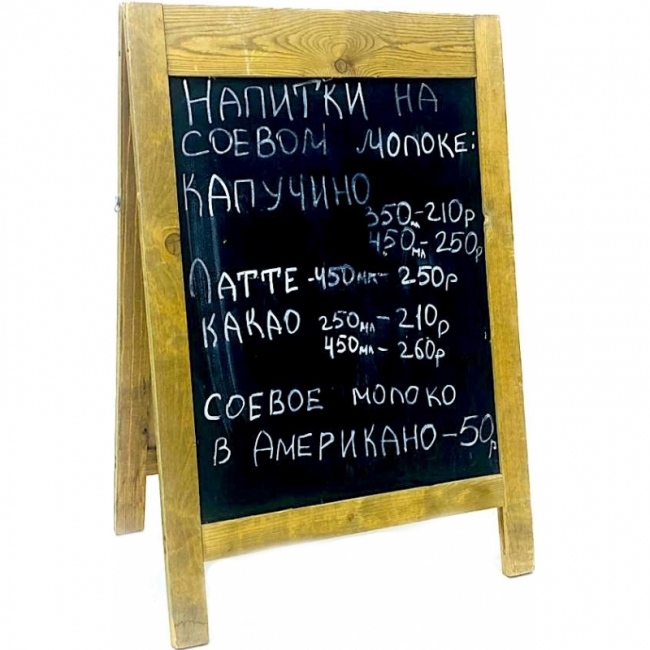 НАПИТКИ НА
СОЕВОМ МОЛОКЕ:
КАПУЧИНО
350мл-210р
450мл-250р
ЛАТТЕ-450мл-250р
КАКАО 250мл-210р
450мл-260р
СОЕВОЕ МОЛОКО
В АМЕРИКАНО-50р